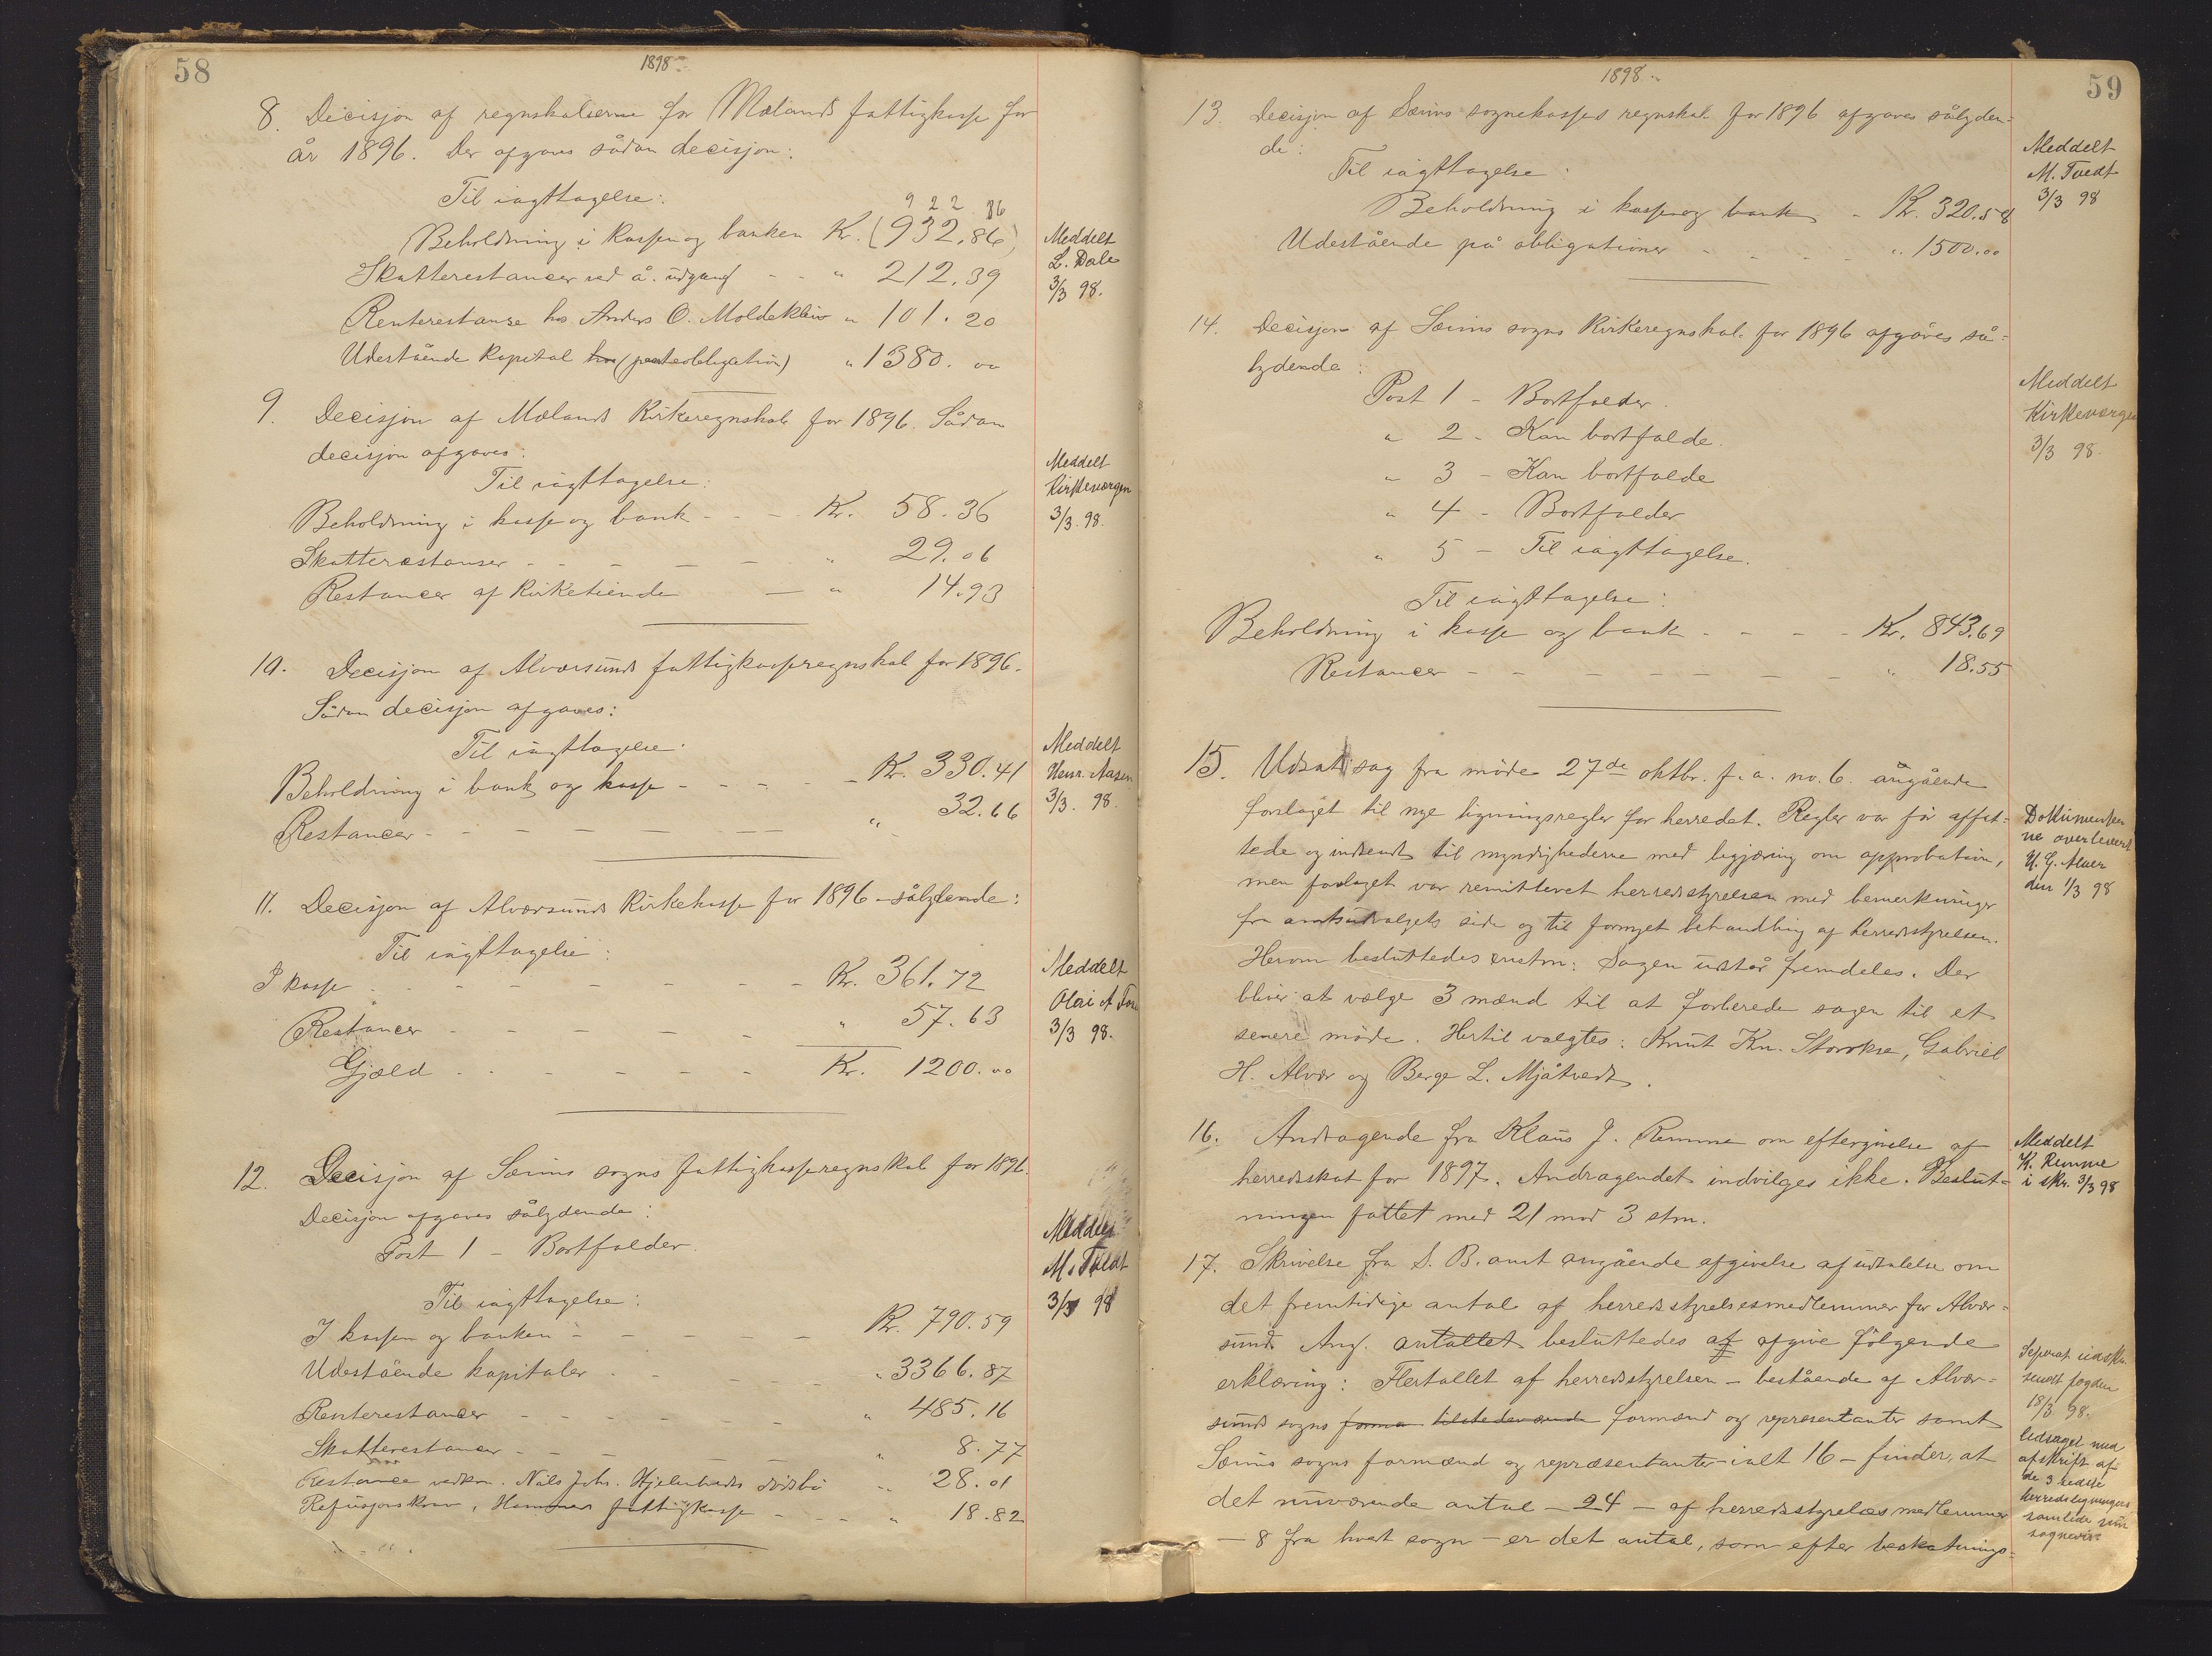 58
1898
8. Decisjon af regnskaberne for Mælands fattigkasse for
år 1896. Der afgaves sådan decisjon:
Til iagttagelse:
922 86
Beholdning i kassen og banken Kr. (932,86)
Skatterestancer ved å. udgang - - " 212.39
Renterestanse hos Anders O. Moldekleiv " 101.20
Udestående kapital hos (panteobligation) " 1380.00
Meddelt
L. Dale
3/3 98.
9. Decisjon af Mælands Kirkeregnskab for 1896. Sådan
decisjon afgaves:
Til iagttagelse:
Beholdning i kasse og bank - - - Kr. 58.36
Skatterestanser - - - - - " 29.06
Restancer af Kirketiende - " 14.93
Meddelt
Kirkeværgen
3/3. 98.
10. Decisjon af Alværsunds fattigkasseregnskab for 1896.
Sådan decisjon afgaves:
Til iagttagelse:
Beholdning i bank og kasse - - - - Kr. 330.41
Restancer - - - - - - - " 32.66
Meddelt
Henr. Aasen
3/3. 98.
11. Decisjon af Alværsunds Kirkekasse for 1896 - sålydende:
Til iagttagelse:
I kasse - - - - - - - - Kr. 361.72
Restancer - - - - - - " 57.63
Gjæld - - - - - - Kr. 1200.00
Meddelt
Olai A
3/3 98.
12. Decisjon af Sæims sogns fattigkasseregnskab for 1896.
Decisjon afgaves sålydende:
Post 1 - Bortfalder.
Til iagttagelse:
I kassen og banken - - - - - Kr. 790.59
Udestående kapitaler - - - - - " 3366.87
Renterestancer - - - - - - - " 485.16
Skatterestancer - - - - - " 8.77
Restance vedkom. Nils Johs. Hjelmtveits dödsbo " 28.01
Refusjonskrav, Hammers fattigkasse - - - " 18.82
Meddelt
M. Tvedt
3/3 98
59
1898
13. Decisjon af Sæims sognekasses regnskab for 1896 afgaves sålyden-
de:
Til iagttagelse:
Beholdning i kassen og bank - Kr. 320.58
Udestående på obligationer - - - - " 1500.00
Meddelt
M. Tvedt
3/3 98
14. Decisjon af Sæims sogns Kirkeregnskab for 1896 afgaves så-
lydende:
Post 1 - Bortfalder.
" 2 - Kan bortfalde.
" 3 - Kan bortfalde
" 4 - Bortfalder
" 5 - Til iagttagelse.
Til iagttagelse:
Beholdning i kasse og bank - - - - Kr. 843.69
Restancer - - - - - - - - " 18.55
Meddelt
Kirkeværgen
3/3 98.
15. Udsat sag fra möde 27de oktbr. f. a. no. 6. angående
forslaget til nye ligningsregler for herredet. Regler var før affat-
tede og indsendt til myndighederne med begjæring om approbation,
men forslaget var remitteret herredsstyrelsen med bemerkninger
fra amtsudvalgets side og til fornyet behandling af herredsstyrelsen.
Herom besluttedes enstm: Sagen udstår fremdeles. Der
bliver at vælge 3 mænd til at forberede sagen til et
senere möde. Hertil valgtes: Knut Kn. Storokse, Gabriel
H. Alvær og Berge L. Mjåtvedt.
Dokumenter
ne overlevert
H. G. Alvær
den 1/3 98
16. Andragende fra Klaus J. Remme om eftergivelse af
herredsskat for 1897. Andragendet indvilges ikke. Beslut-
ningen fattet med 21 mod 3 stm.
Meddelt
K. Remme
i skr. 3/3 98
17. Skrivelse fra S. B. amt angående afgivelse af udtalelse om
det fremtidige antal af herredsstyrelsesmedlemmer for Alvær-
sund. Ang. antallet besluttedes at afgive følgende
erklæring: Flertallet af herredsstyrelsen - bestående af Alvær-
sunds sogns tilstedeværende formænd og repræsentanter samt
Sæims sogns formænd og repræsentanter - ialt 16 - finder, at
det nuværende antal - 24 - af herredsstyrelses medlemmer
- 8 fra hvert sogn - er det antal, som efter beskatnings-
Separat udskr.
sendt fogden
18/3 98.
ledsaget med
afskrift af
de 3 sidste
herredsligninger
samtlige
sognevis